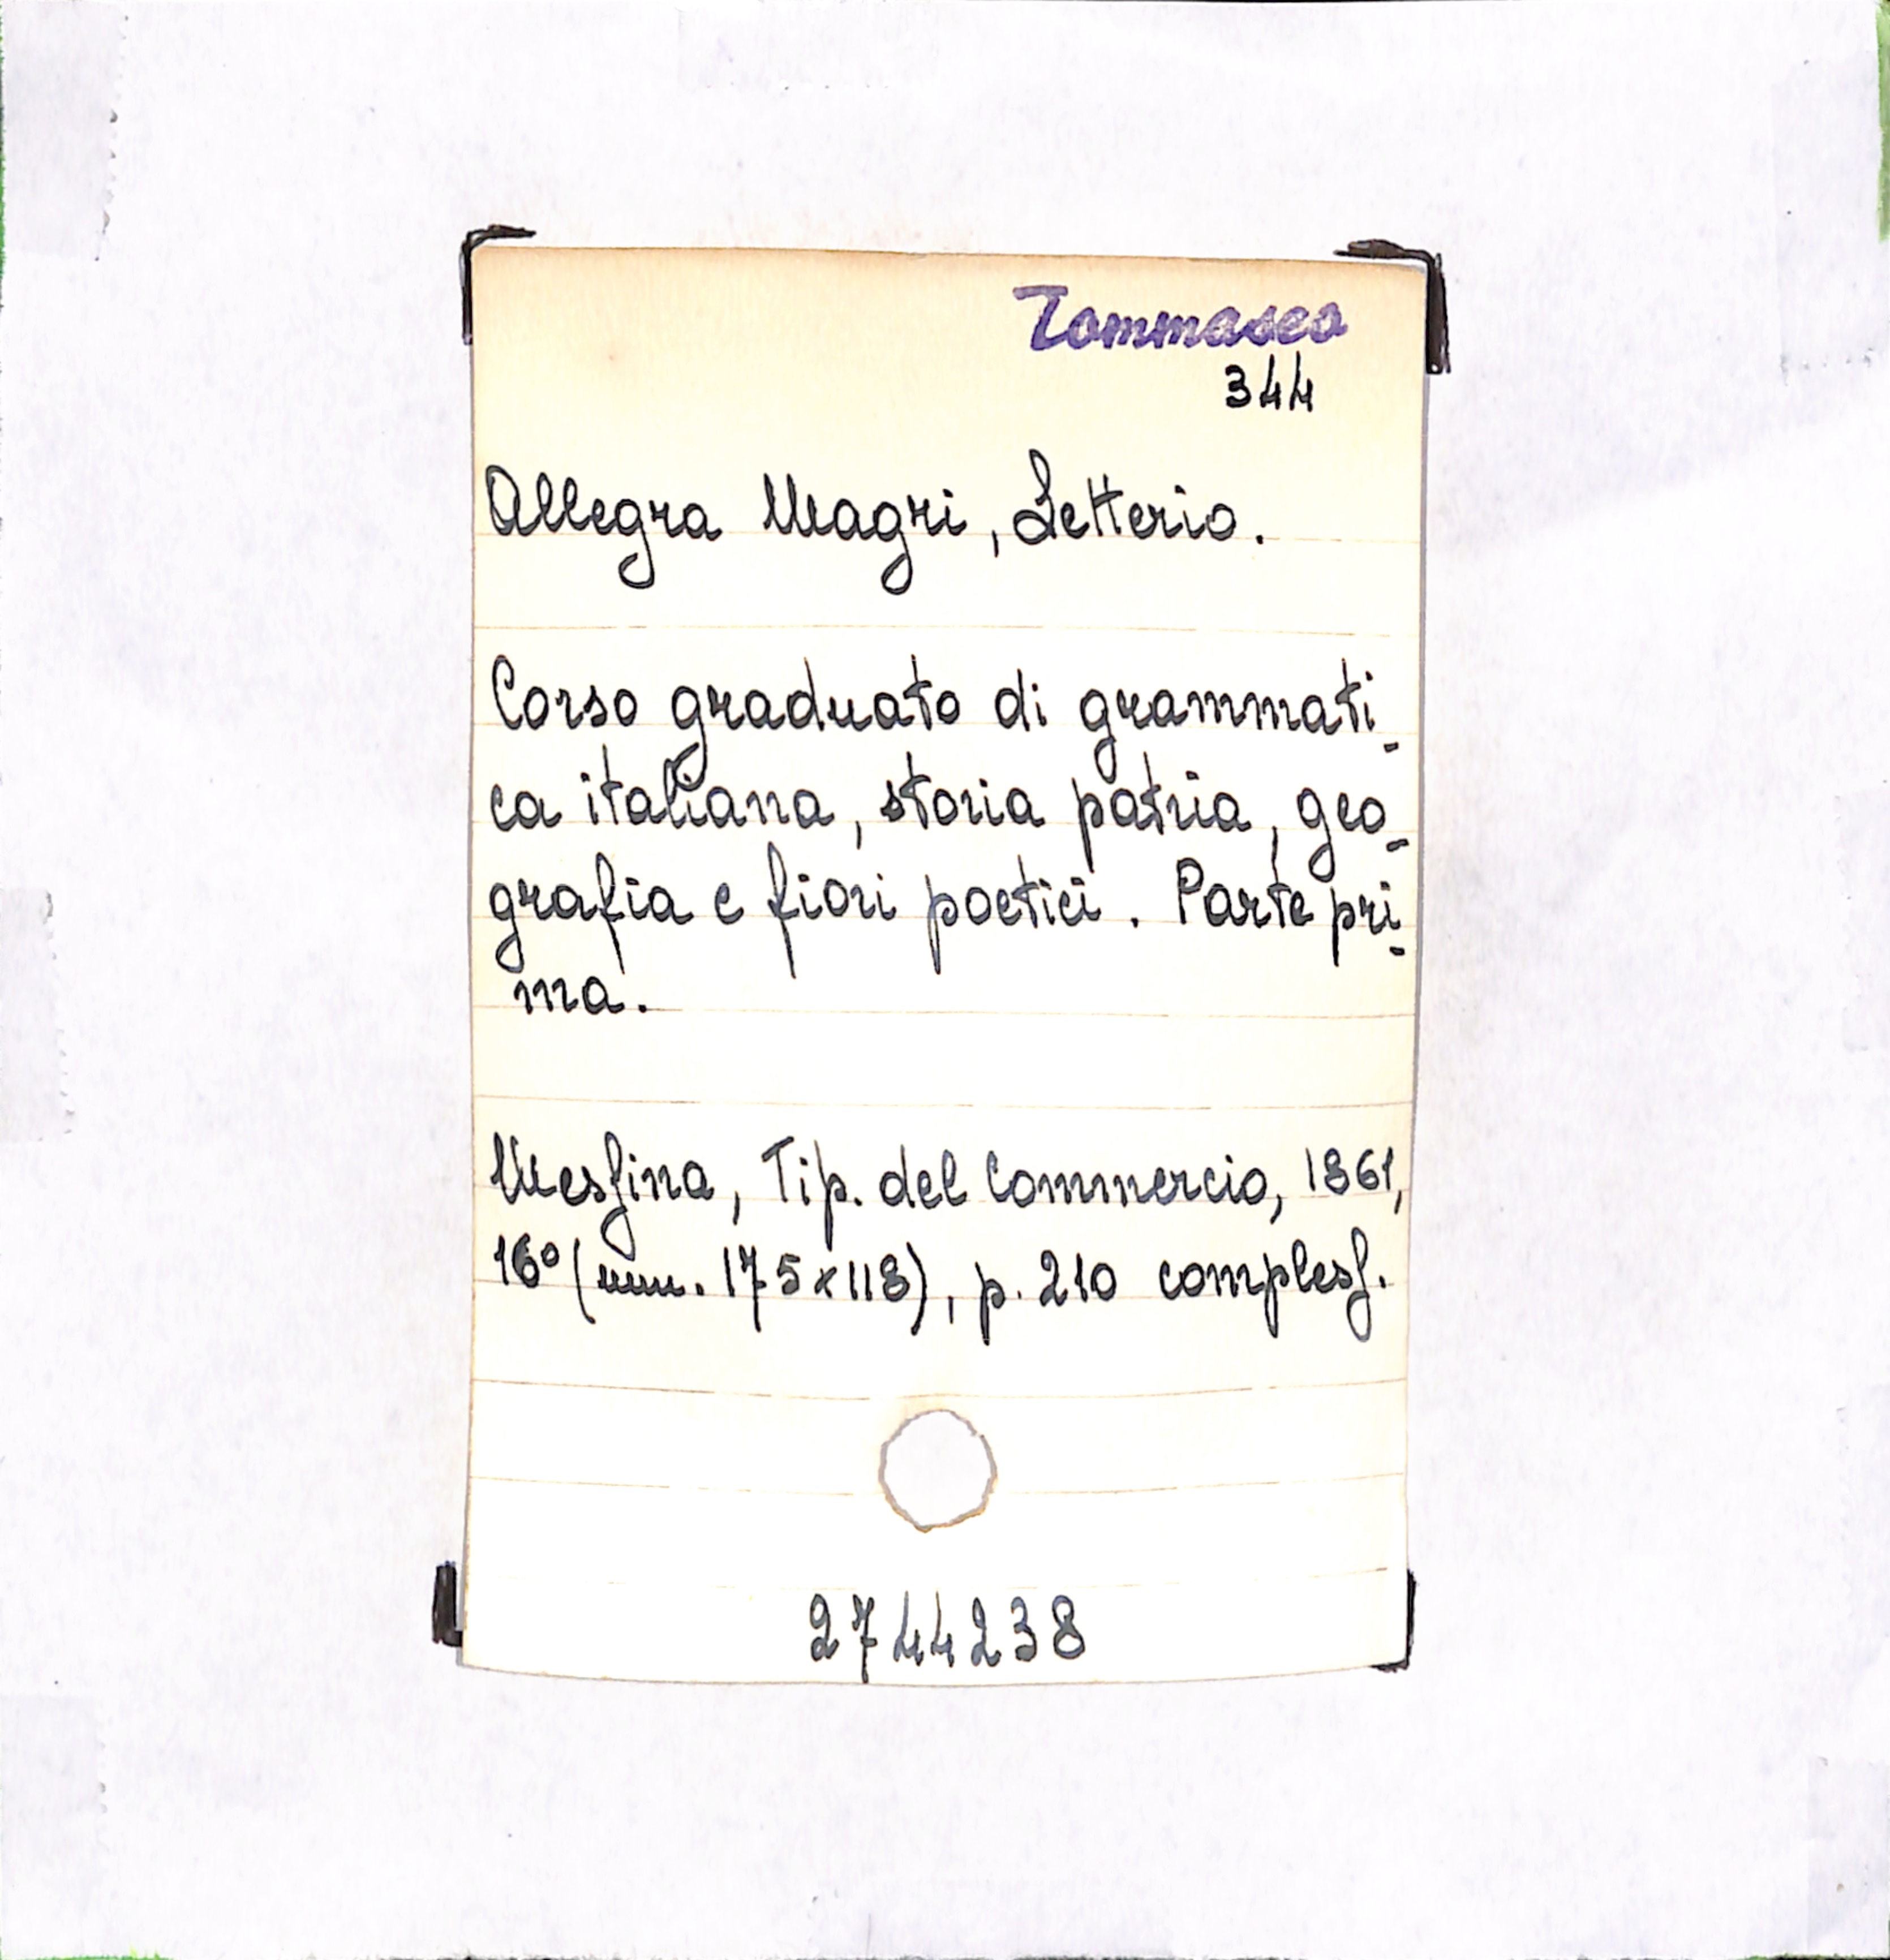 Tommaseo
344
Allegra Magri, Letterio.
Corso graduato di grammati-
ca italiana, storia patria, geo-
grafia e fiori poetici. Parte pri-
ma.
Messina, Tip. del Commercio, 1861,
16° (mm. 175x118), p. 210 compless.
2744238